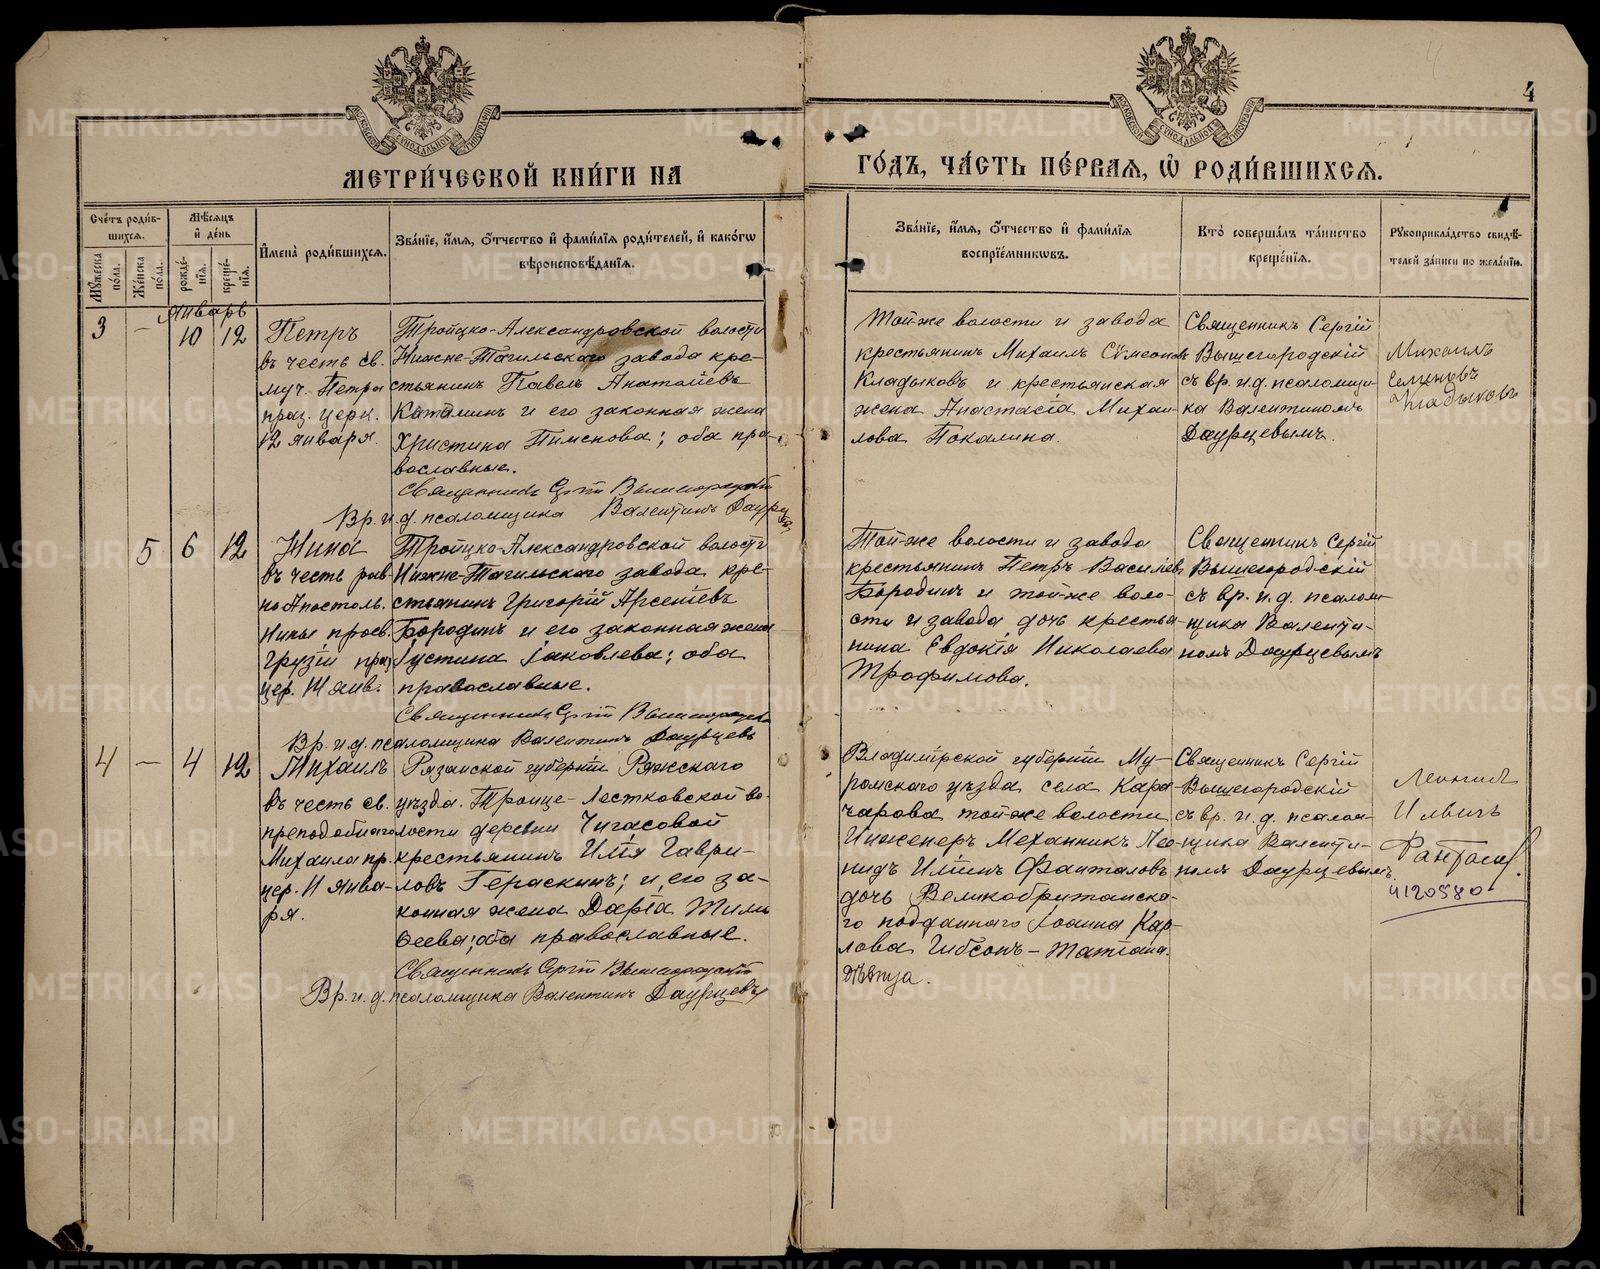 4
МЕТРИ́ЧЕСКОЙ КНИ́ГИ НА
ГО́ДЪ, ЧА́СТЬ ПЕ́РВАѦ, Ѡ҆ РОДИ́ВШИХСѦ.
Сче́тъ роди́в-
шихсѧ.
Мꙋ́жеска по́ла.
Же́нска по́ла.
Мѣ́сѧцъ и҆ де́нь
рожде́-нїѧ.
креще́-нїѧ.
И҆мена̀ роди́вшихсѧ.
Зва́нїе, и҆́мѧ, ѻ҆́тчество и҆ фами́лїѧ роди́телей, и҆ како́гѡ
вѣроисповѣ́данїѧ.
Зва́нїе, и҆́мѧ, ѻ҆́тчество и҆ фами́лїѧ
воспрїе́мникѡвъ.
Кто̀ соверша́лъ та́инство
креще́нїѧ.
Рꙋкоприкла́дство свидѣ́-
телей за́писи по жела́нїю.
Январь
3 — 10 12
Петръ
въ честь св.
муч. Петра
праз. церк.
12 января.
Тройцко-Александровской волости
Нижне-Тагильскаго завода кре-
стьянинъ Павелъ Анатолiевъ
и его законная жена
Христина Пименова; оба пра-
вославные.
Священникъ Сергiй Вышегородскiй
Вр. и. д. псаломщика Валентинъ Даурцевъ
Той-же волости и завода
крестьянинъ Михаилъ Сѵмеоновъ
Кладыковъ и крестьянская
жена Анастасiа Михаи-
лова Покалина.
Священникъ Сергiй
Вышегородскiй
съ вр. и. д. псаломщи-
ка Валентиномъ
Даурцевымъ.
Михаилъ
Семеновъ
Кладыковъ
5 6 12
Нина
въ честь рав-
ноапостольн.
Нины просв.
Грузiи праз.
цер. 14 янв.
Тройцко-Александровской волости
Нижне-Тагильскаго завода кре-
стьянинъ Григорiй Арсенiевъ
Бородинъ и его законная жена
Iустина Iаковлева; оба
православные.
Священникъ Сергiй Вышегородскiй
Вр. и. д. псаломщика Валентинъ Даурцевъ
Той-же волости и завода
крестьянинъ Петръ Василiевъ
Бородинъ и той-же воло-
сти и завода дочь крестья-
нина Евдокiя Николаева
Трофимова.
Священникъ Сергiй
Вышегородскiй
съ вр. и. д. псалом-
щика Валенти-
номъ Даурцевымъ
4 — 4 12
Михаилъ
въ честь св.
преподобнаго
Михаила пр.
цер. 11 янва-
ря.
Рязанской губернiи Ряжскаго
уѣзда. Троице-Лестковской во-
лости деревни Чигасовой
крестьянинъ Илiя Гаври-
ловъ Гераскинъ; и его за-
конная жена Дарiа Тимо-
ѳеева; оба православные.
Священникъ Сергiй Вышегородскiй
Вр. и. д. псаломщика Валентинъ Даурцевъ
Владимiрской губернiи Му-
ромскаго уѣзда села Кара-
чарова той-же волости
Инженеръ Механникъ Лео-
нидъ Илiинъ Фанталовъ
дочь Великобританска-
го подданнаго Iоанна Кар-
лова Гибсонъ – Татiана.
дѣвица.
Священникъ Сергiй
Вышегородскiй
съ вр. и. д. псалом-
щика Валенти-
номъ Даурцевымъ.
Леонидъ
Ильичъ
4120580
METRIKI.GASO-URAL.RU